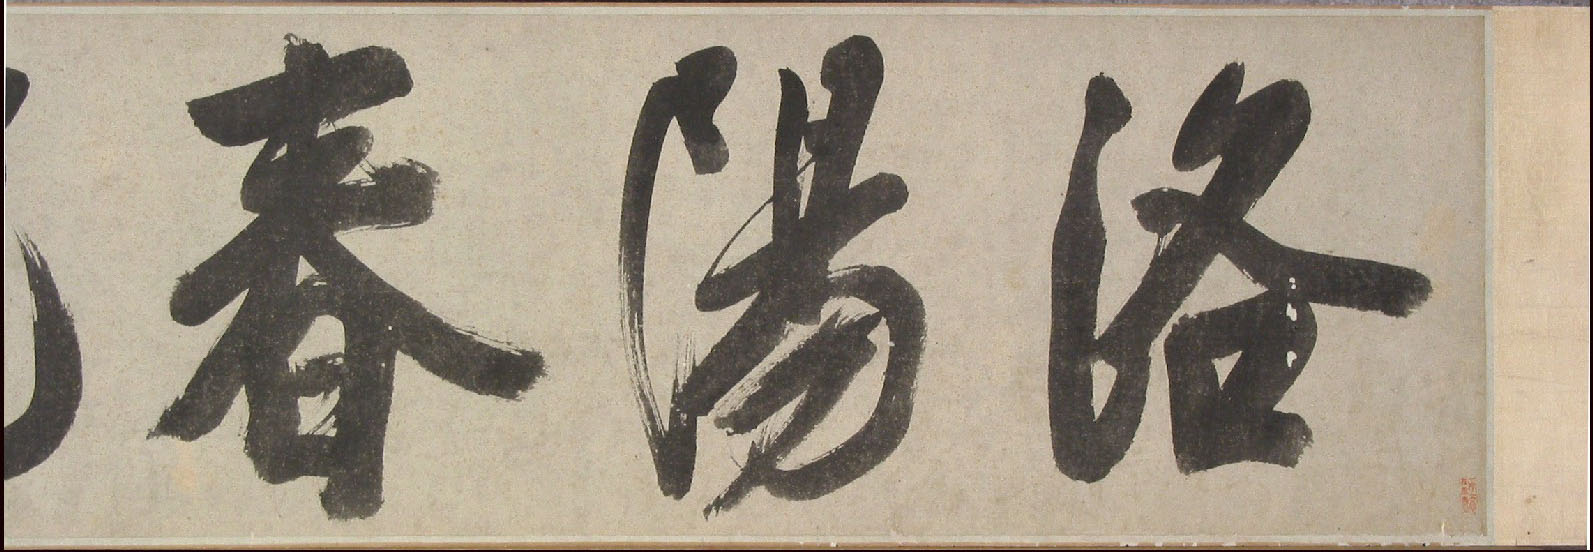 洛陽春